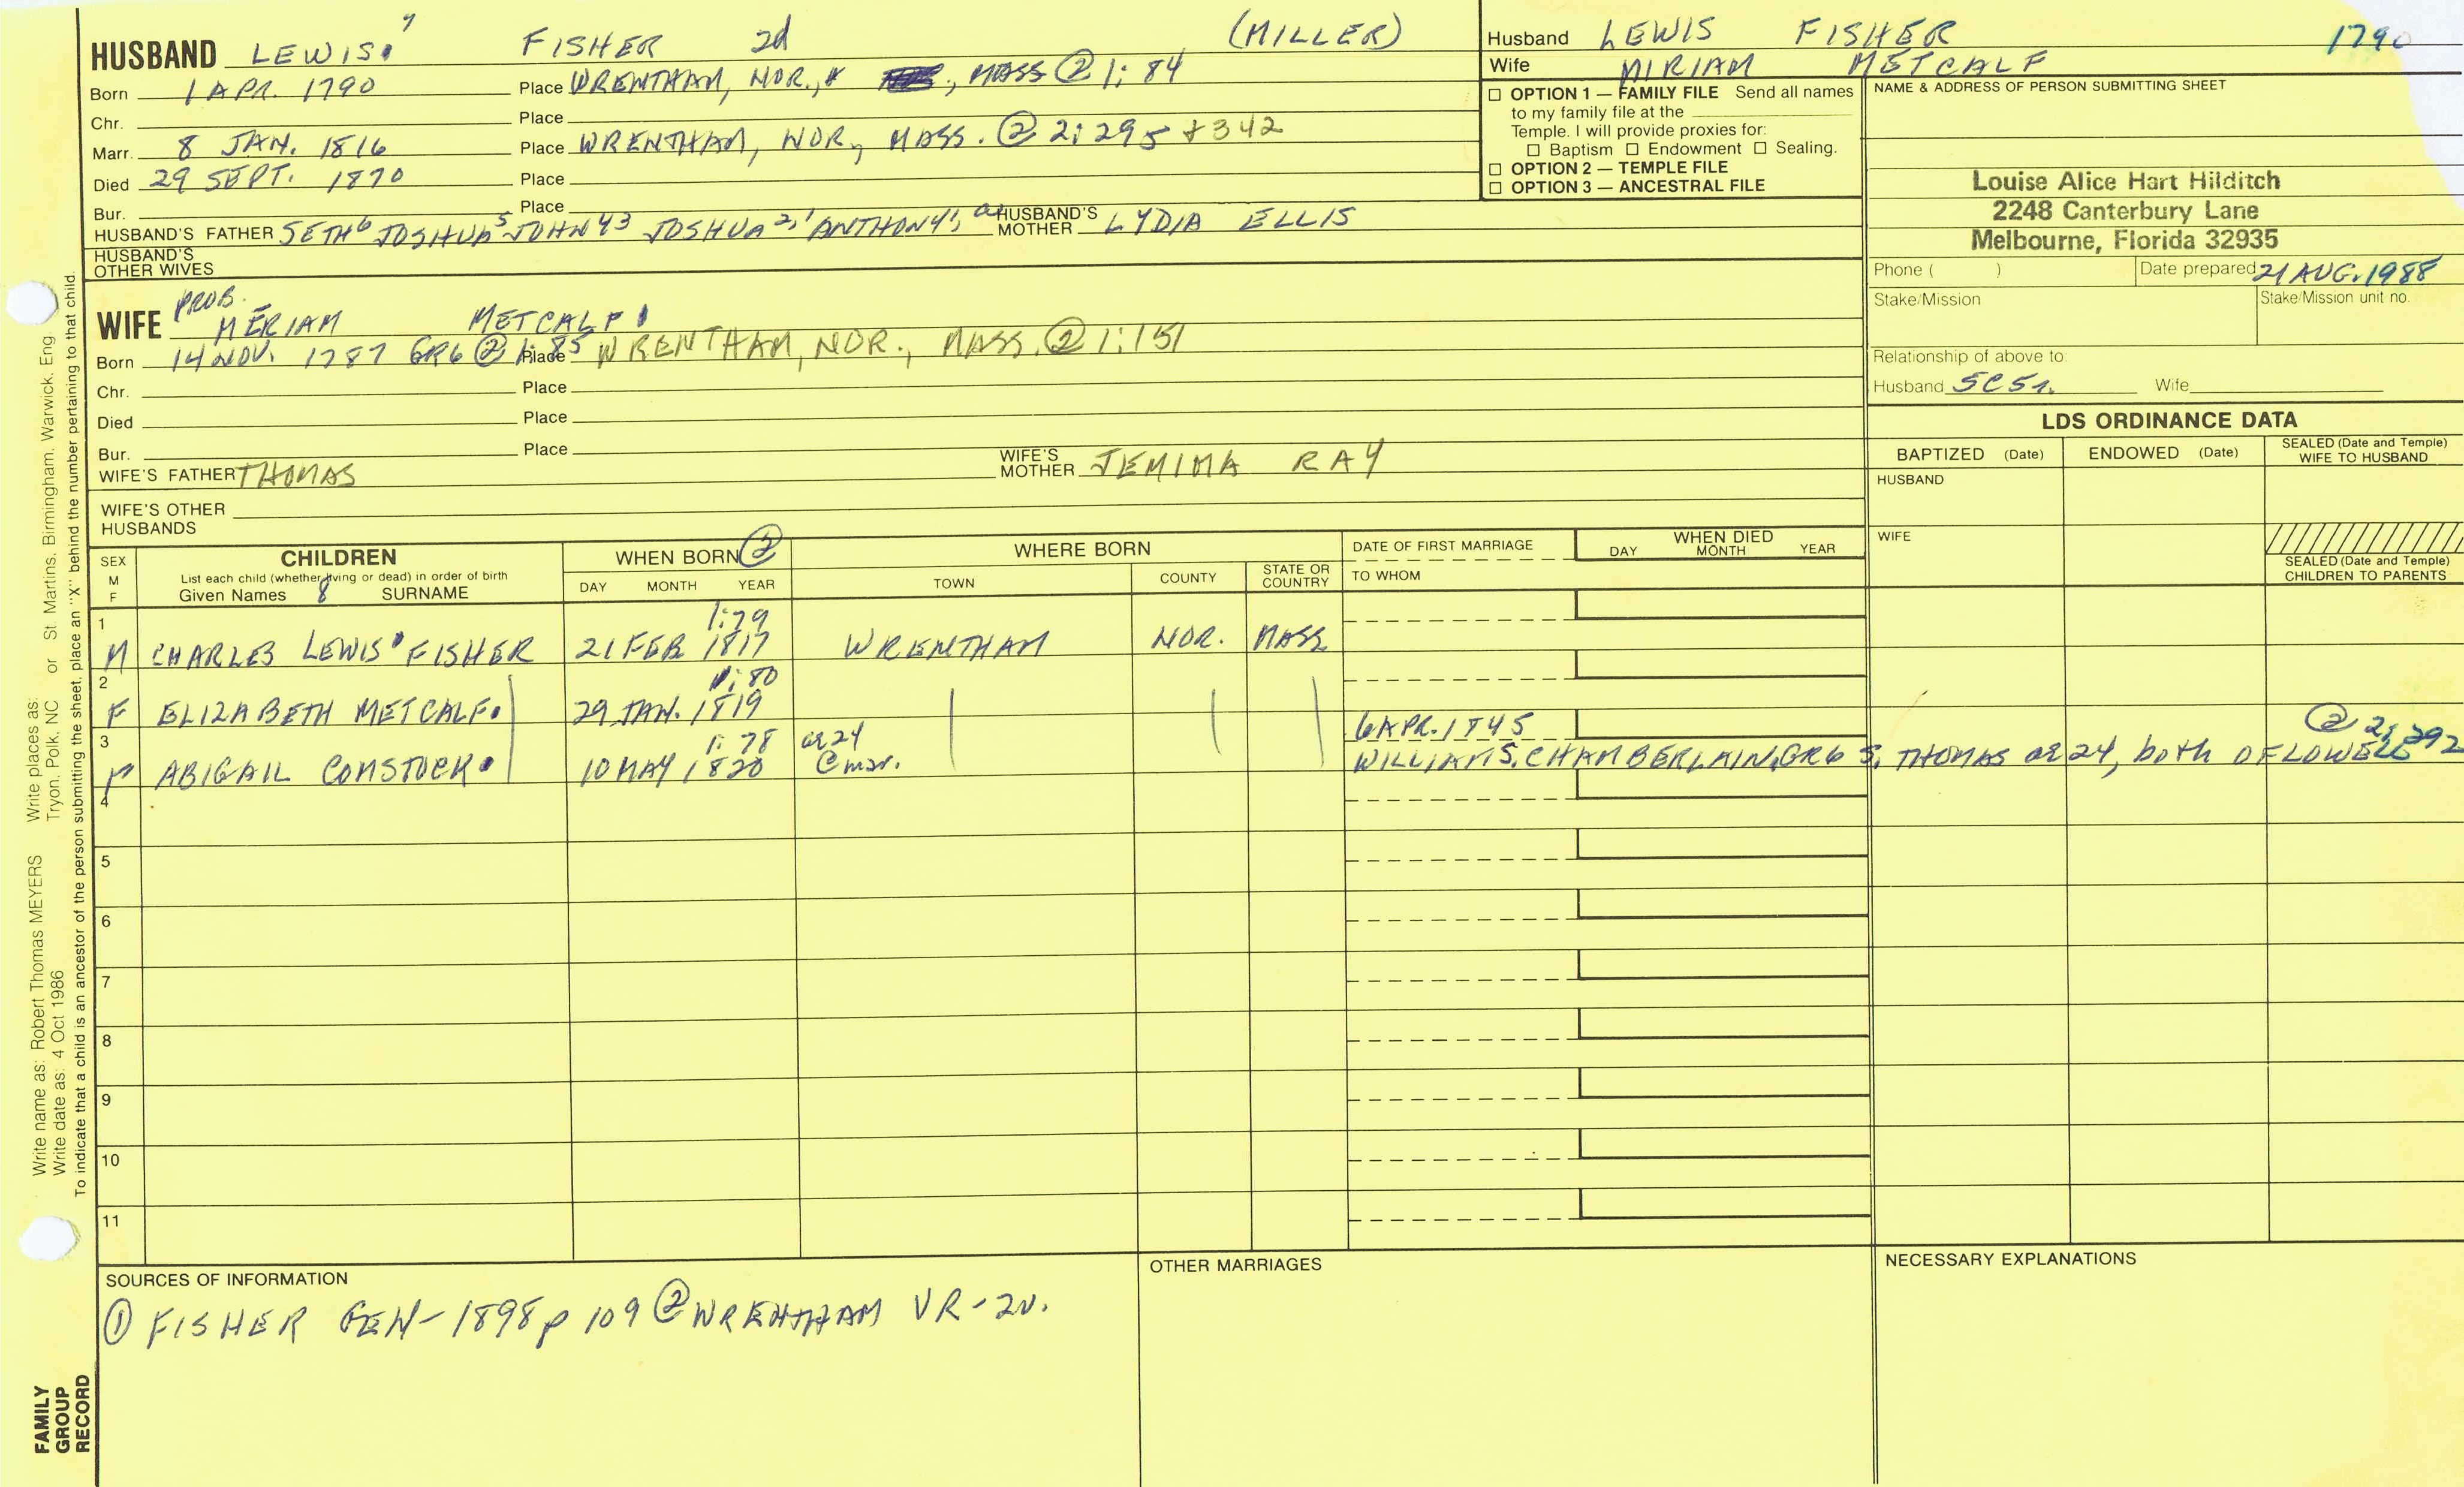 HUSBAND LEWIS 7 FISHER 2d (MILLER)
Born 1 APR. 1790 Place WRENTHAM, NOR., MASS @ 1:84
Chr. Place
Marr. 8 JAN. 1816 Place WRENTHAM, NOR., MASS. ② 2:295 + 342
Died 29 SEPT. 1870 Place
Bur. Place
HUSBAND'S FATHER SETH6 JOSHUA5 JOHN43 JOSHUA2,1 ANTHONY1, HUSBAND'S MOTHER LYDIA ELLIS
HUSBAND'S OTHER WIVES
Husband LEWIS FISHER 1790
Wife MIRIAM METCALF
☐ OPTION 1 — FAMILY FILE Send all names
to my family file at the
Temple. I will provide proxies for:
☐ Baptism ☐ Endowment ☐ Sealing.
☐ OPTION 2 — TEMPLE FILE
☐ OPTION 3 — ANCESTRAL FILE
NAME & ADDRESS OF PERSON SUBMITTING SHEET
Louise Alice Hart Hilditch
2248 Canterbury Lane
Melbourne, Florida 32935
Phone ( ) Date prepared 21 AUG. 1988
Stake/Mission Stake/Mission unit no.
Relationship of above to:
Husband 5C5r. Wife
PROB.
WIFE MERIAM METCALF
Born 14 NOV. 1787 GR6 ② 1:85 Place WRENTHAM, NOR., MASS. ② 1:151
Chr. Place
Died Place
Bur. Place
WIFE'S FATHER THOMAS WIFE'S MOTHER JEMIMA RAY
WIFE'S OTHER
HUSBANDS
LDS ORDINANCE DATA
BAPTIZED (Date) ENDOWED (Date) SEALED (Date and Temple) WIFE TO HUSBAND
HUSBAND
WIFE
SEALED (Date and Temple) CHILDREN TO PARENTS
SEX M F CHILDREN WHEN BORN ② WHERE BORN DATE OF FIRST MARRIAGE WHEN DIED
List each child (whether living or dead) in order of birth
Given Names 8 SURNAME DAY MONTH YEAR TOWN COUNTY STATE OR COUNTRY TO WHOM DAY MONTH YEAR
1 1:79
M CHARLES LEWIS FISHER 21 FEB 1817 WRENTHAM NOR. MASS
2 1:80
F ELIZABETH METCALF. 29 JAN. 1819
3 1:78 ae 24 6 APR. 1845 @ 2:292
F ABIGAIL COMSTOCK 10 MAY 1820 @ mar. WILLIAM S. CHAMBERLAIN, GR6 S. THOMAS ae 24, both OF LOWELL
4
5
6
7
8
9
10
11
SOURCES OF INFORMATION
① FISHER GEN-1898 p 109 ② WRENTHAM VR-2v.
OTHER MARRIAGES
NECESSARY EXPLANATIONS
Write name as: Robert Thomas MEYERS Write places as: Tryon, Polk, NC or St. Martins, Birmingham, Warwick, Eng.
Write date as: 4 Oct 1986
To indicate that a child is an ancestor of the person submitting the sheet, place an "X" behind the number pertaining to that child.
FAMILY
GROUP
RECORD